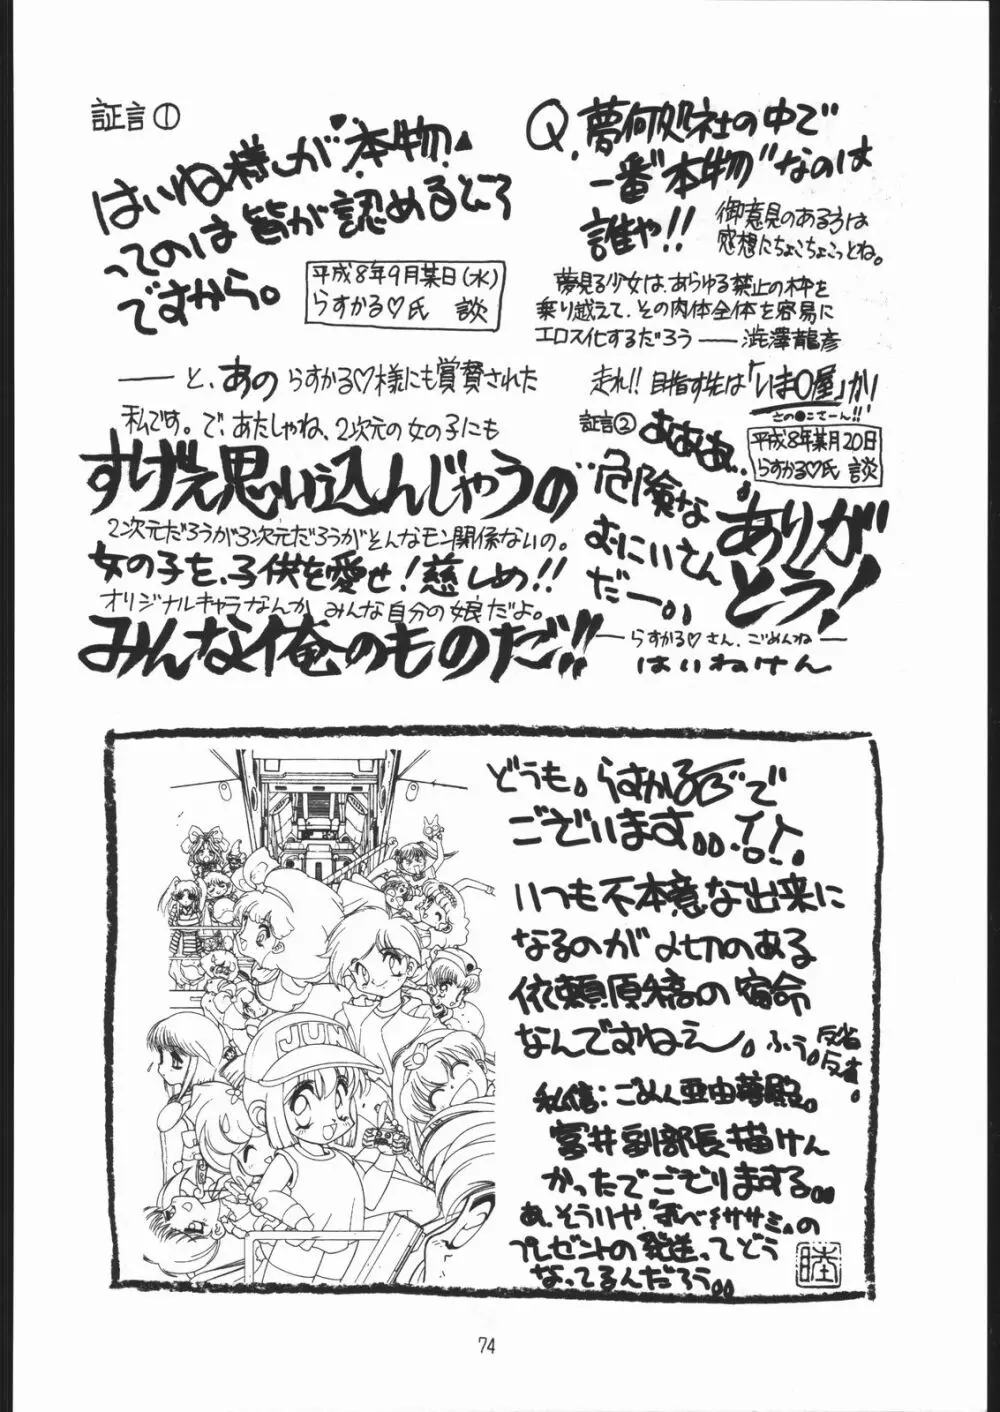 証言①
はいね様が“本物”
ってのは皆が認めるところ
ですから。
平成8年9月某日(水)
らすかる♡氏 談
Q.夢何処社の中で
一番“本物”なのは
誰や!!
御意見のある方は
感想にちょこちょこっとね。
夢見る少女は、あらゆる禁止の枠を
乗り越えて、その肉体全体を容易に
エロス化するだろう――澁澤龍彦
――と、あのらすかる♡様にも賞賛された
私です。で、あたしゃね、2次元の女の子にも
すげえ思い込んじゃうの
2次元だろうが3次元だろうがそんなモン関係ないの。
女の子を、子供を愛せ!慈しめ!!
オリジナルキャラなんか、みんな自分の娘だよ。
みんな俺のものだ!!
走れ!!目指す先は「いま○屋」か!
さの●こさーん!!
証言②
平成8年某月20日
らすかる♡氏 談
あああ、
危険な
おにいさん
だー。
ありが
とう!
―らすかる♡さん、ごめんね―
はいねけん
どうも。らすかるで
ございます。
いつも不本意な出来に
なるのが〆切のある
依頼原稿の宿命
なんですねぇー。ふう。
反省
反省。
私信:ごめん亜由夢殿。
宮井副部長描けん
かったでござりまする。
あ、そういや“すべ～ササミ”の
プレゼントの発送ってどう
なってるんだろう。
睦
JUN
74